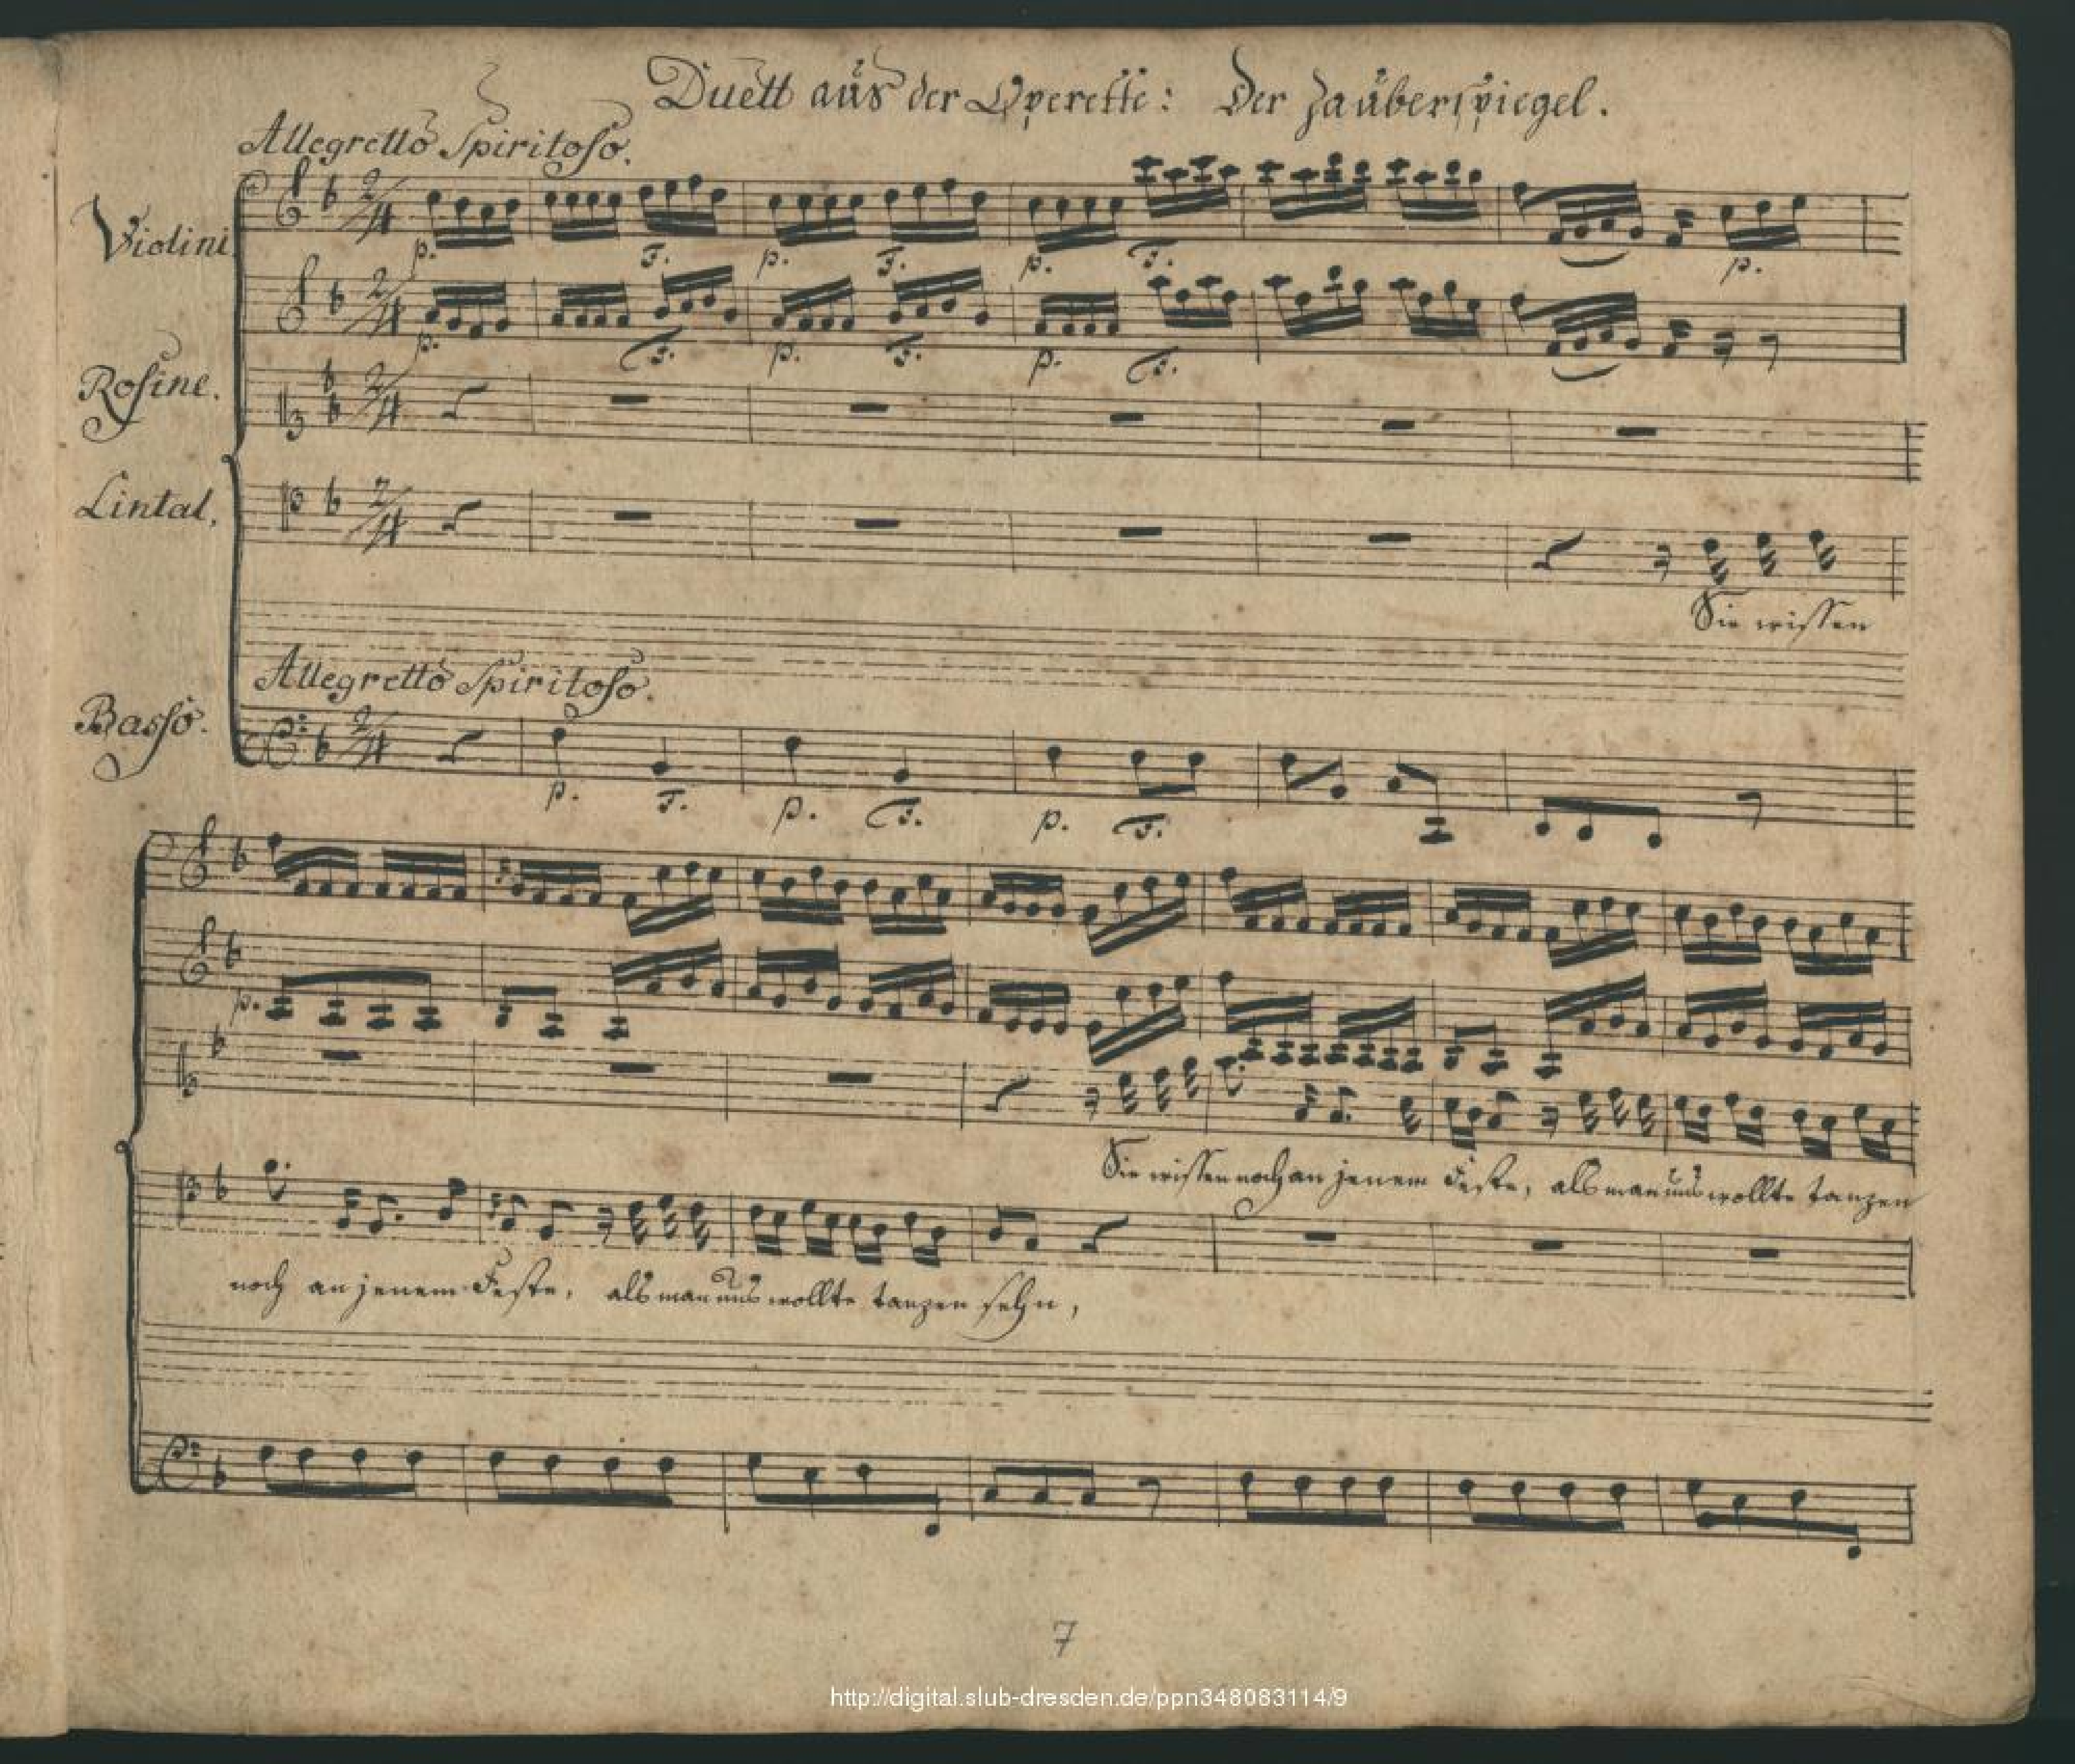 Duett aus der Operette: Der Zauberspiegel.
Allegretto Spiritoso.
Violini
p. F. p. F. p. F. p.
p. F. p. F. p. F.
Rosine.
Lintal.
Sie wissen
Allegretto Spiritoso.
Basso.
p. F. p. F. p. F.
p.
Sie wissen noch an jenem Feste, als man uns wollte tanzen
noch an jenem Feste, als man uns wollte tanzen sehn,
7
http://digital.slub-dresden.de/ppn348083114/9